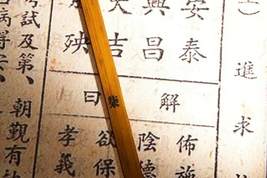 進求
安泰
興昌
吉
殃
解曰
佈施
陰德
欲保
孝義
試及第、朝覲有
病得安